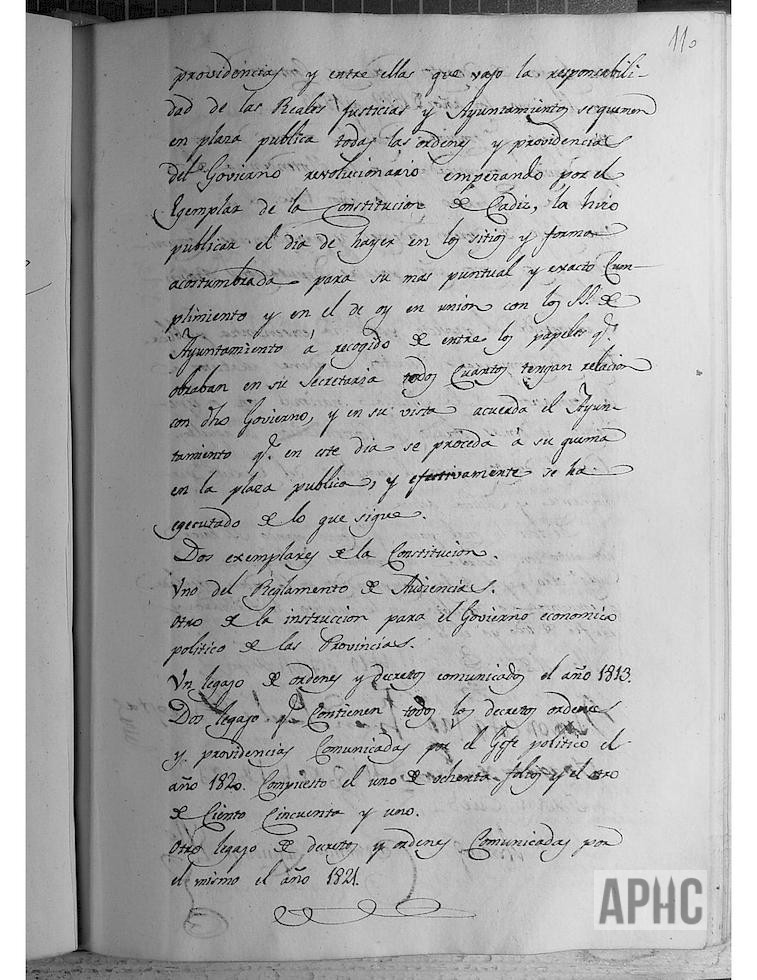 110
providencias y entre ellas que vajo la responsabili-
dad de las Reales Justicias y Ayuntamientos se quemen
en plaza publica todas las ordenes y providencias
del Govierno revolucionario empeñando por el
Egemplar de la Constitucion de Cadiz, la hizo
publicar el dia de hayer en los sitios y forma
acostumbrada para su mas puntual y exacto Cum-
plimiento y en el de oy en union con los SS. de
Ayuntamiento á recogido de entre los papeles q.e
obraban en su Secretaria todos Cuantos tengan relacion
con dho Govierno, y en su vista acuerda el Ayun-
tamiento q.e en este dia se proceda á su quema
en la plaza publica, y efectivamente se ha
egecutado de lo que sigue.
Dos exemplares de la Constitucion.
Uno del Reglamento de Audiencias.
Otro de la instruccion para el Govierno economico
politico de las Provincias.
Un legajo de ordenes y decretos comunicados el año 1813.
Dos legajo q.e Contienen todos los decretos ordenes
y providencias Comunicadas por el Gefe politico el
año 1820. Compuesto el uno de ochenta folios y el otro
de Ciento Cincuenta y uno.
Otro legajo de decretos y ordenes Comunicadas por
el mismo el año 1821.
APHC